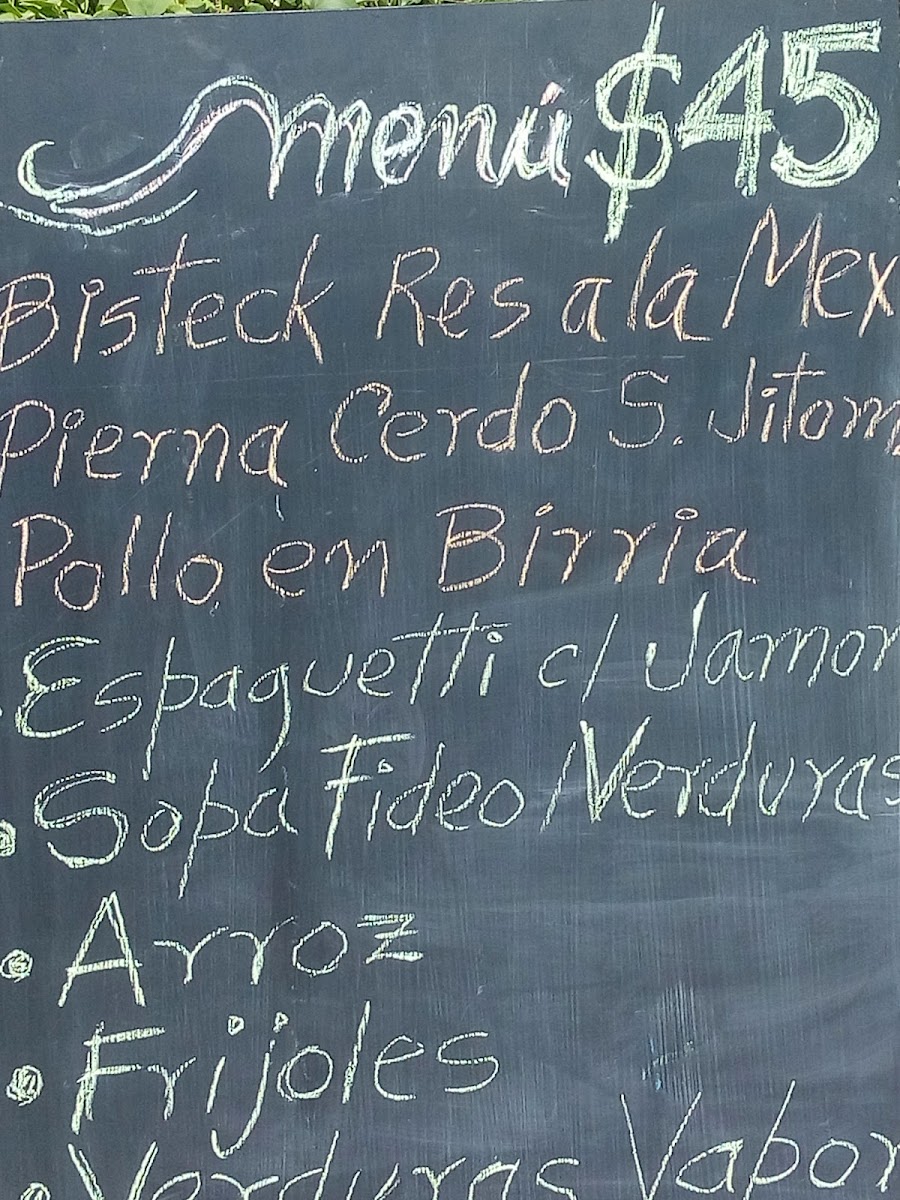 menú $45
Bisteck Res a la Mex
Pierna Cerdo S. Jitom
Pollo en Birria
Espaguetti c/ Jamon
• Sopa Fideo/Verduras
• Arroz
• Frijoles
• Verduras Vapor